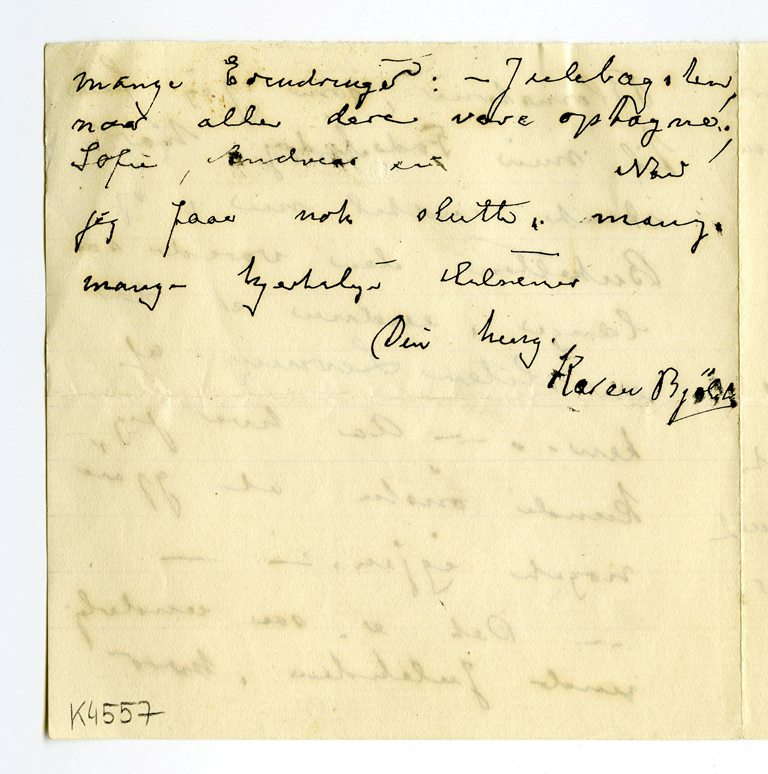 mange Erindringer: – Julebagsten,
naar alle dere vare optagne;
Sofie, Andreas Nei
jeg faar nok slutte, mange,
mange hjertelige Hilsener
Din heng.
Karen Bjölst
K4557